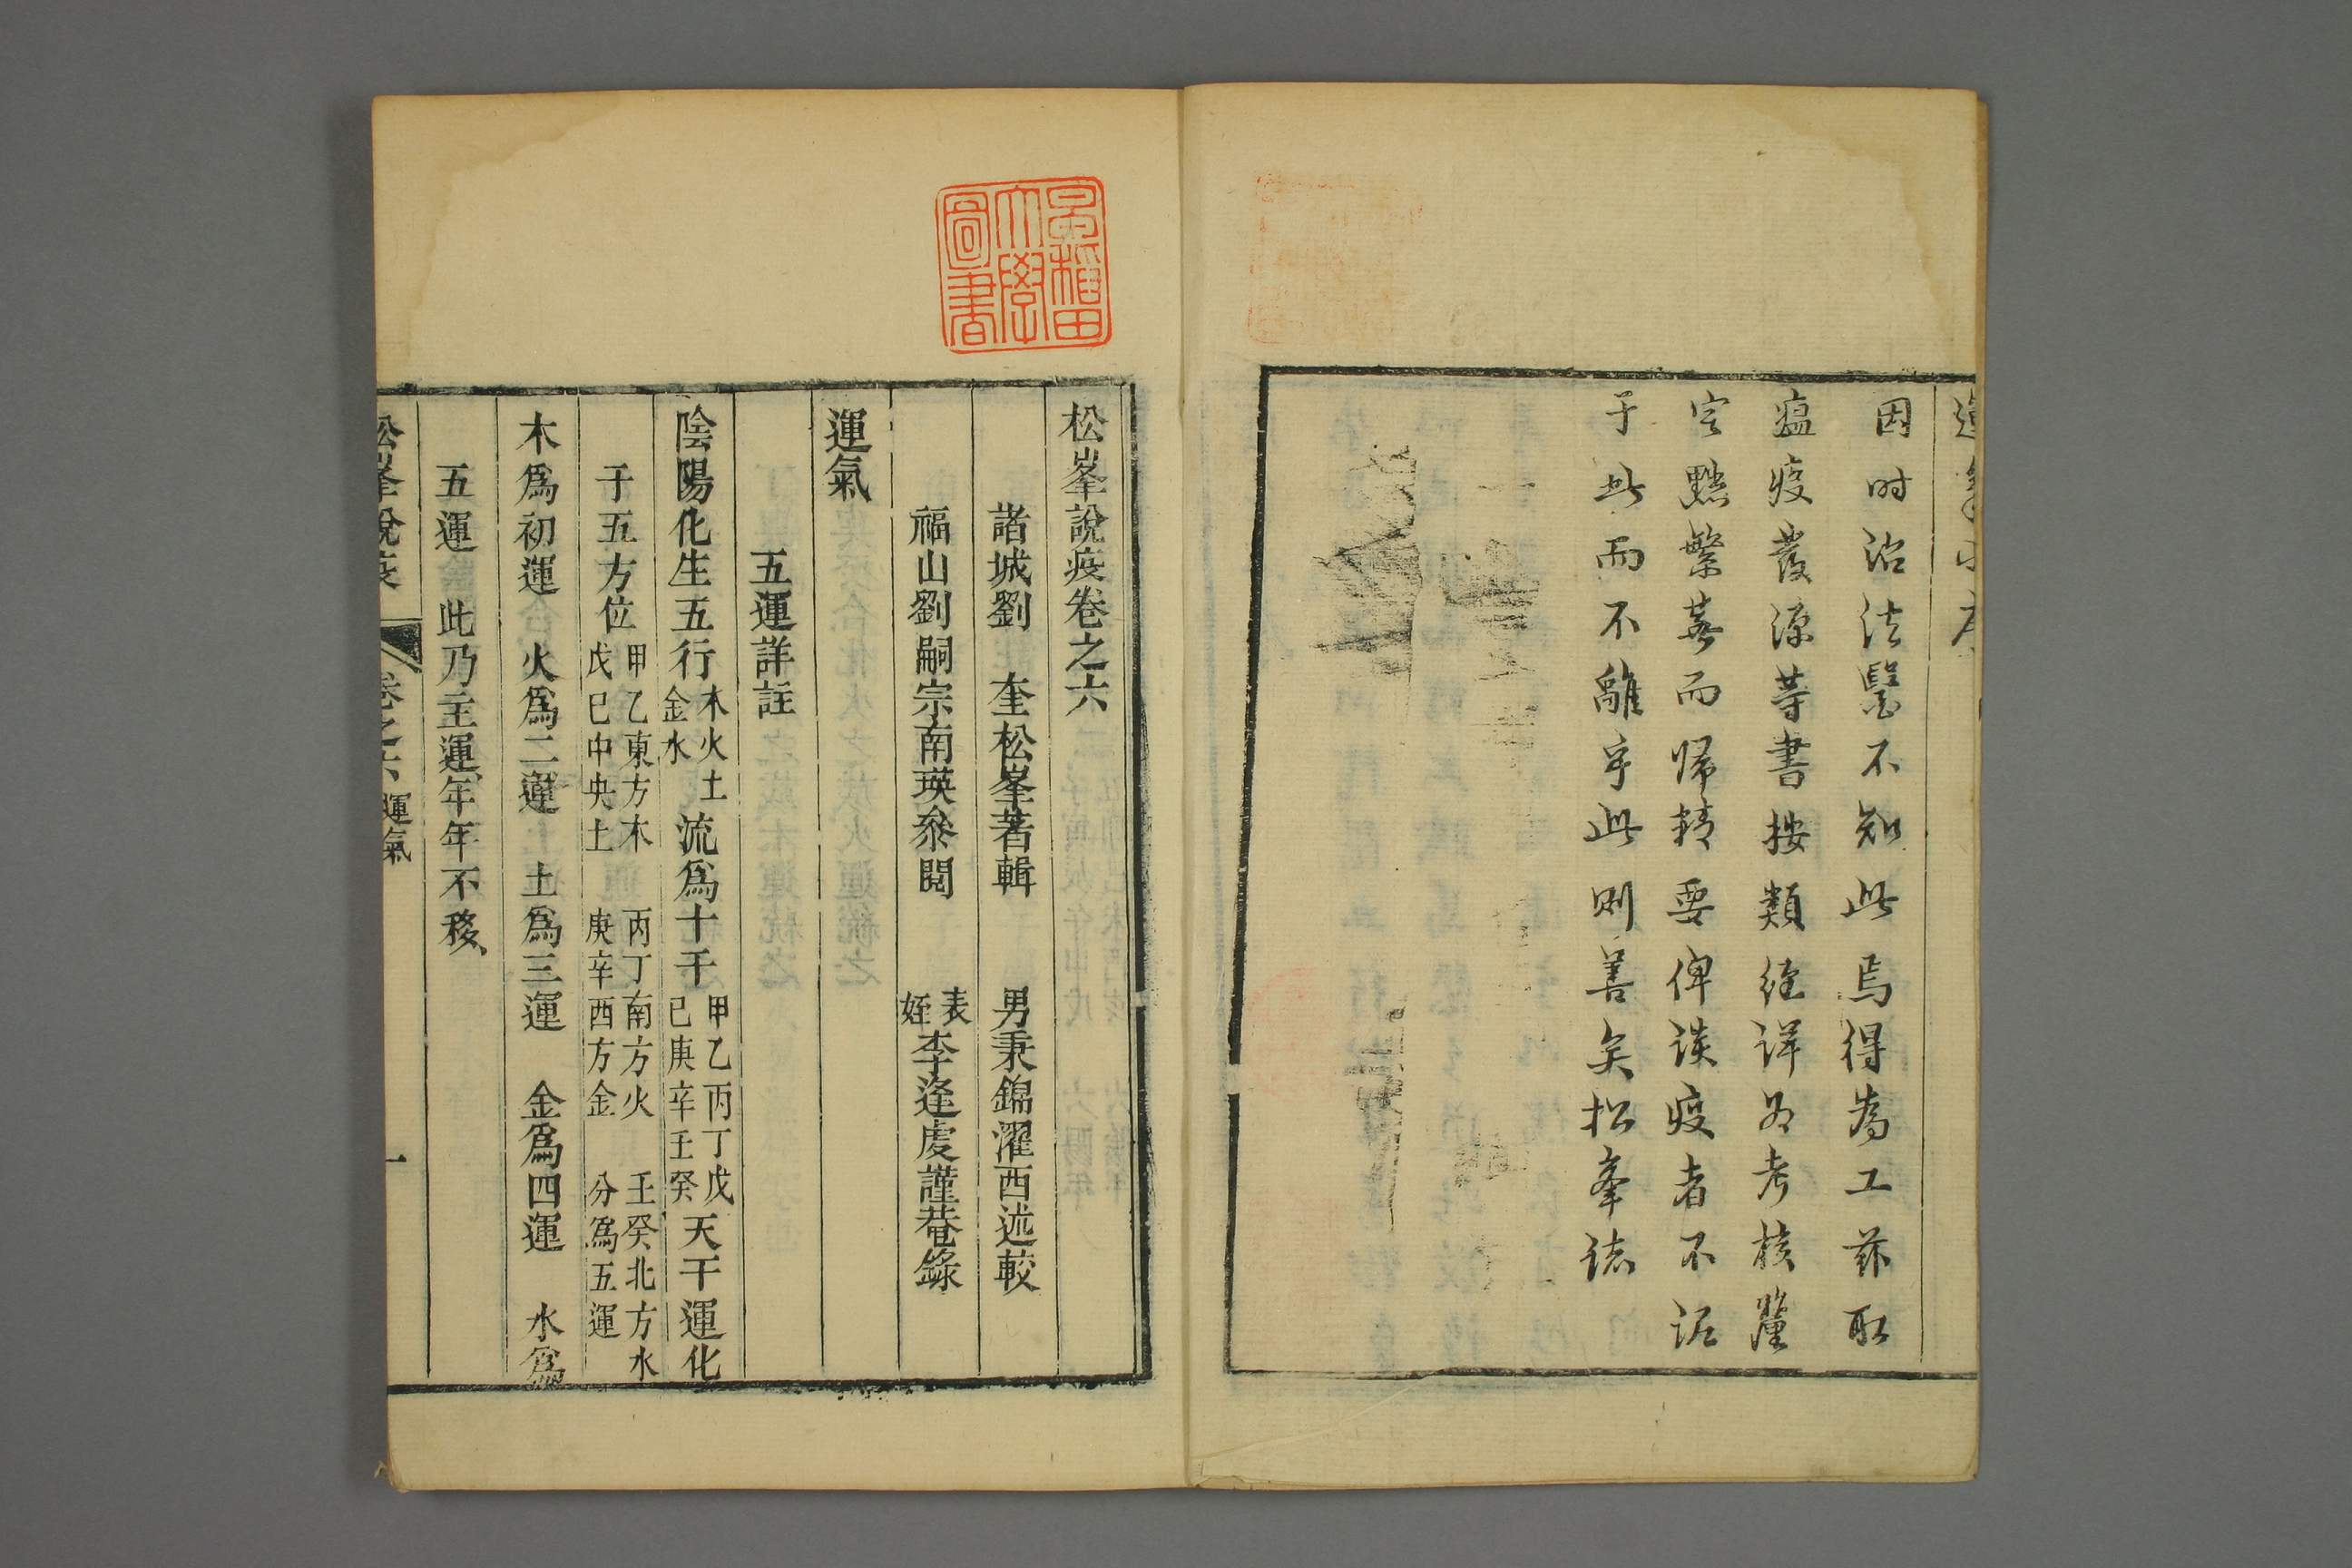 因时治法醫不知此焉得為工茲取
瘟疫發源等書按類經詳為考核釐
定黜繁蕪而歸精要俾談疫者不泥
于此而不離乎此則善矣松峯誌
早稻田大學圖書
松峯說疫卷之六
諸城劉　奎松峯著輯　男秉錦濯西述較
福山劉嗣宗南瑛叅閱　表姪李逢虔謹菴錄
運氣
五運詳註
陰陽化生五行木火土金水流爲十干甲乙丙丁戊己庚辛壬癸天干運化
于五方位甲乙東方木戊己中央土　丙丁南方火庚辛西方金　壬癸北方水分爲五運
木爲初運　火爲二運　土爲三運　金爲四運　水爲
五運　此乃主運、年年不移、
松峯說疫　卷之六　運氣　一